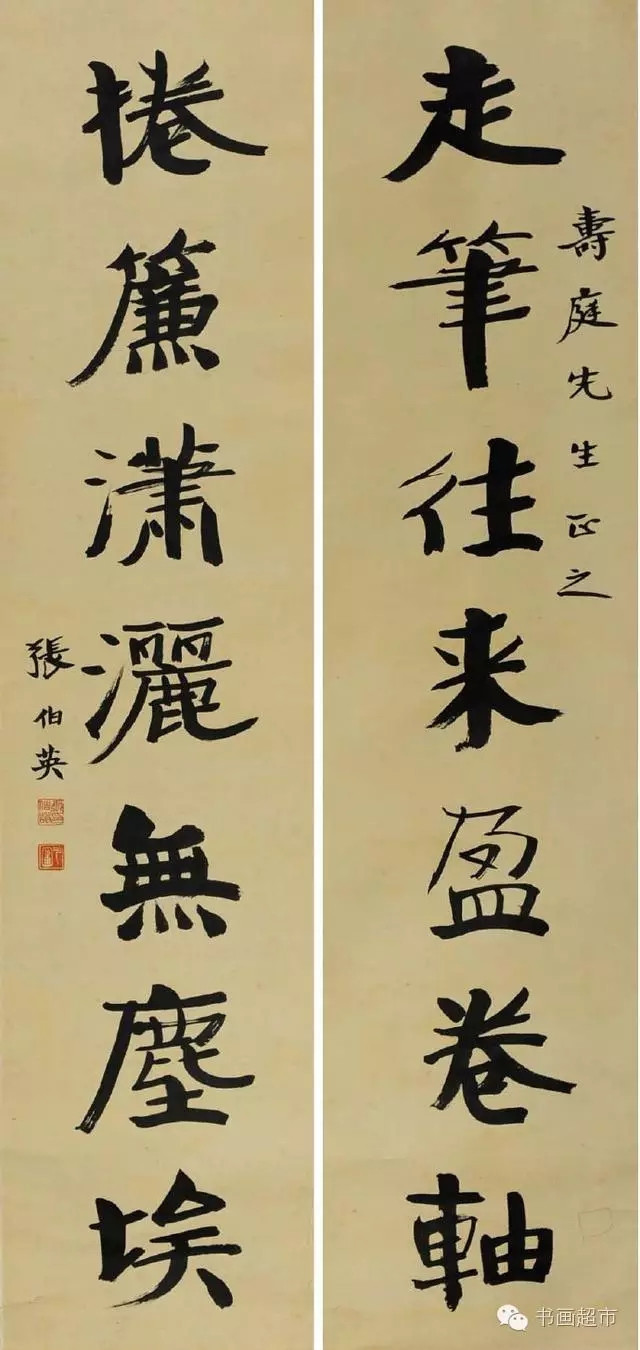 壽庭先生正之
走筆往来盈卷軸
捲簾潇灑無塵埃
張伯英
书画超市